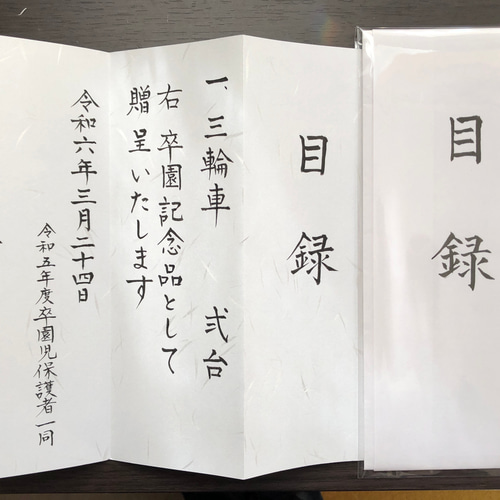 目録
目録
一、三輪車 弐台
右 卒園記念品として
贈呈いたします
令和六年三月二十四日
令和五年度卒園児保護者一同